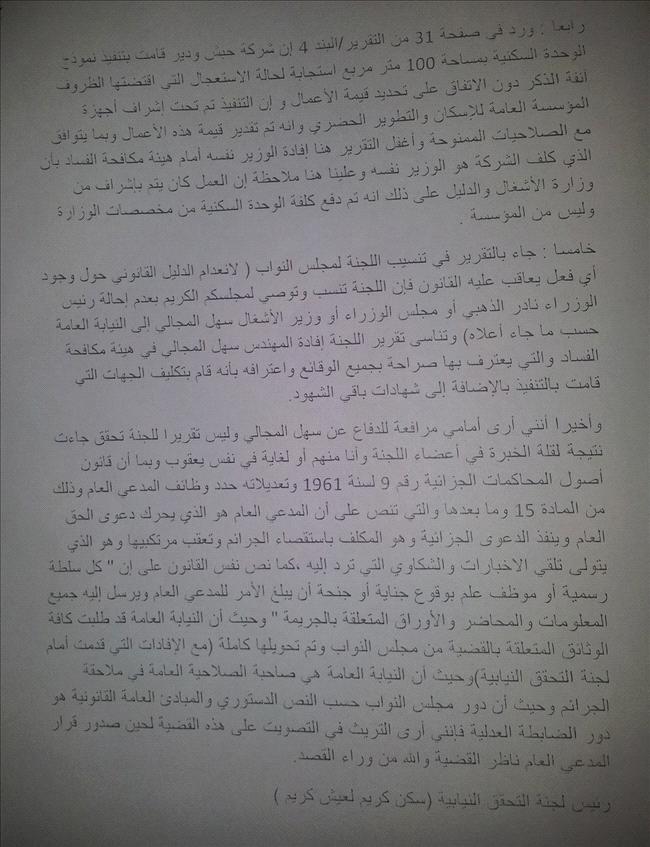 رابعا : ورد في صفحة 31 من التقرير/البند 4 إن شركة حبش ودير قامت بتنفيذ نموذج
الوحدة السكنية بمساحة 100 متر مربع استجابة لحالة الاستعجال التي اقتضتها الظروف
أنفة الذكر دون الاتفاق على تحديد قيمة الأعمال و إن التنفيذ تم تحت إشراف أجهزة
المؤسسة العامة للإسكان والتطوير الحضري وانه تم تقدير قيمة هذه الأعمال وبما يتوافق
مع الصلاحيات الممنوحة وأغفل التقرير هنا إفادة الوزير نفسه أمام هيئة مكافحة الفساد بأن
الذي كلف الشركة هو الوزير نفسه وعلينا هنا ملاحظة إن العمل كان يتم بإشراف من
وزارة الأشغال والدليل على ذلك انه تم دفع كلفة الوحدة السكنية من مخصصات الوزارة
وليس من المؤسسة .
خامسا : جاء بالتقرير في تنسيب اللجنة لمجلس النواب ( لانعدام الدليل القانوني حول وجود
أي فعل يعاقب عليه القانون فإن اللجنة تنسب وتوصي لمجلسكم الكريم بعدم إحالة رئيس
الوزراء نادر الذهبي أو مجلس الوزراء أو وزير الأشغال سهل المجالي إلى النيابة العامة
حسب ما جاء أعلاه) وتناسى تقرير اللجنة إفادة المهندس سهل المجالي في هيئة مكافحة
الفساد والتي يعترف بها صراحة بجميع الوقائع واعترافه بأنه قام بتكليف الجهات التي
قامت بالتنفيذ بالإضافة إلى شهادات باقي الشهود.
وأخيرا أنني أرى أمامي مرافعة للدفاع عن سهل المجالي وليس تقريرا للجنة تحقق جاءت
نتيجة لقلة الخبرة في أعضاء اللجنة وأنا منهم أو لغاية في نفس يعقوب وبما أن قانون
أصول المحاكمات الجزائية رقم 9 لسنة 1961 وتعديلاته حدد وظائف المدعي العام وذلك
من المادة 15 وما بعدها والتي تنص على أن المدعي العام هو الذي يحرك دعوى الحق
العام وينفذ الدعوى الجزائية وهو المكلف باستقصاء الجرائم وتعقب مرتكبيها وهو الذي
يتولى تلقي الاخبارات والشكاوي التي ترد إليه ،كما نص نفس القانون على إن " كل سلطة
رسمية أو موظف علم بوقوع جناية أو جنحة أن يبلغ الأمر للمدعي العام ويرسل إليه جميع
المعلومات والمحاضر والأوراق المتعلقة بالجريمة " وحيث أن النيابة العامة قد طلبت كافة
الوثائق المتعلقة بالقضية من مجلس النواب وتم تحويلها كاملة (مع الإفادات التي قدمت أمام
لجنة التحقق النيابية)وحيث أن النيابة العامة هي صاحبة الصلاحية العامة في ملاحقة
الجرائم وحيث أن دور مجلس النواب حسب النص الدستوري والمبادئ العامة القانونية هو
دور الضابطة العدلية فإنني أرى التريث في التصويت على هذه القضية لحين صدور قرار
المدعي العام ناظر القضية والله من وراء القصد.
رئيس لجنة التحقق النيابية (سكن كريم لعيش كريم )